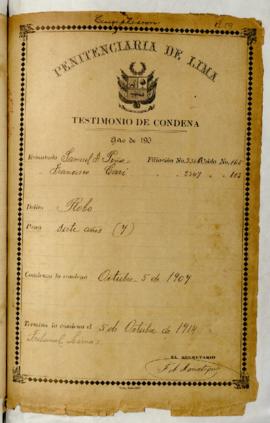 PENITENCIARIA DE LIMA
TESTIMONIO DE CONDENA
Año de 190
Rematado Samuel Filiación No. Celda No.
Francisco " " 2347 " " 103
Delito Robo
Pena siete años (7)
Comienza la condena Octubre 5 de 1907
Termina la condena el 5 de Octubre de 1914
Tribunal
EL SECRETARIO